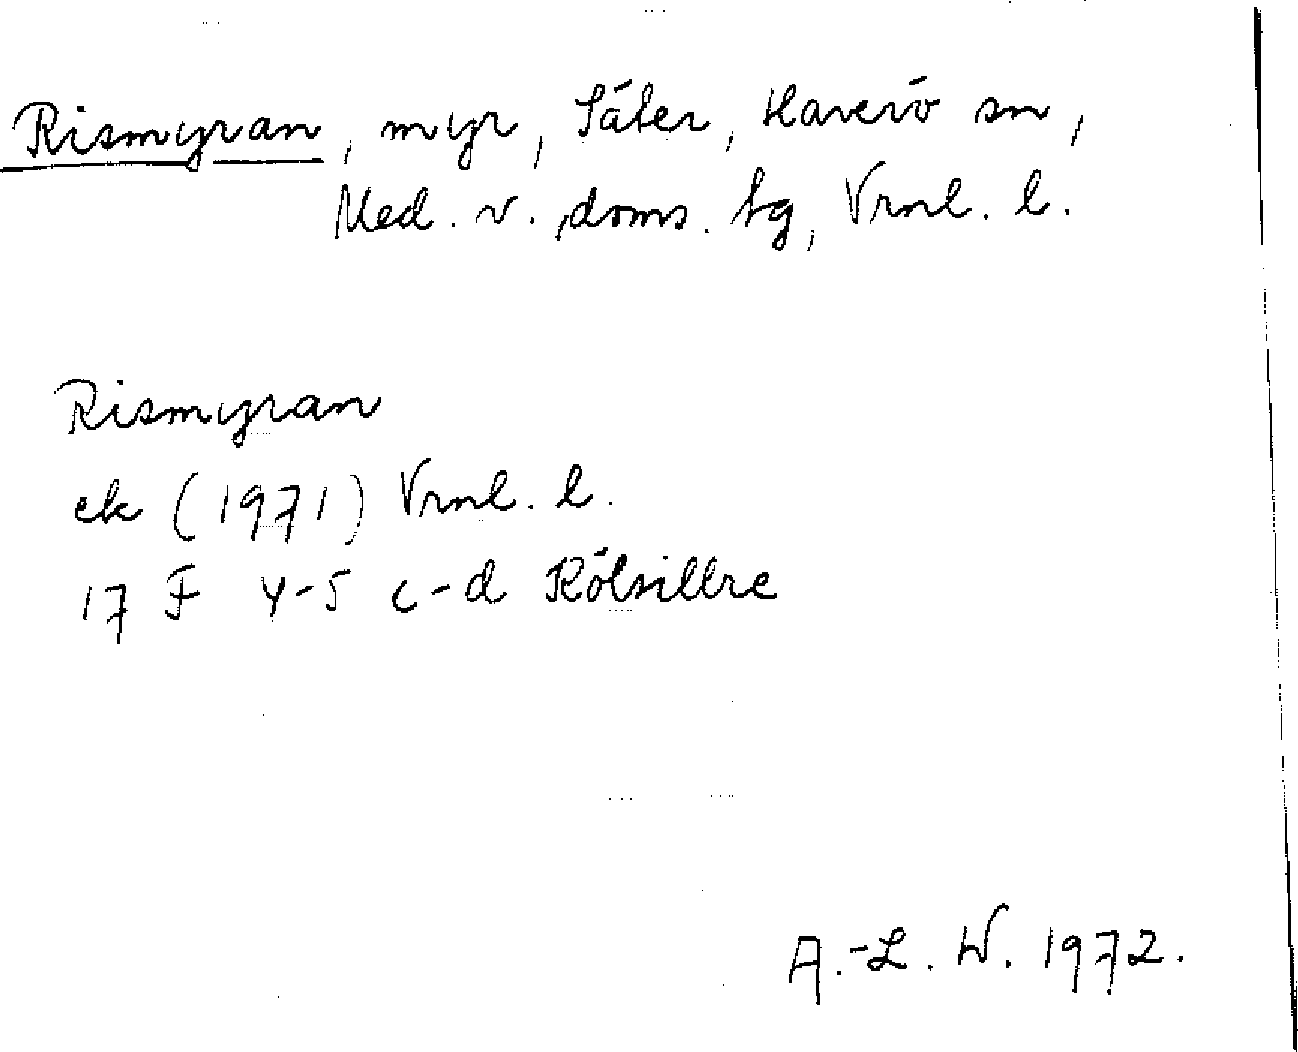 Rismyran, myr, Säter, Haverö sn,
Med. v. doms. tg, Vrnl. l.
Rismyran
ek (1971) Vrnl. l.
17 F 4-5 c-d Kölsillre
A.-L. W. 1972.